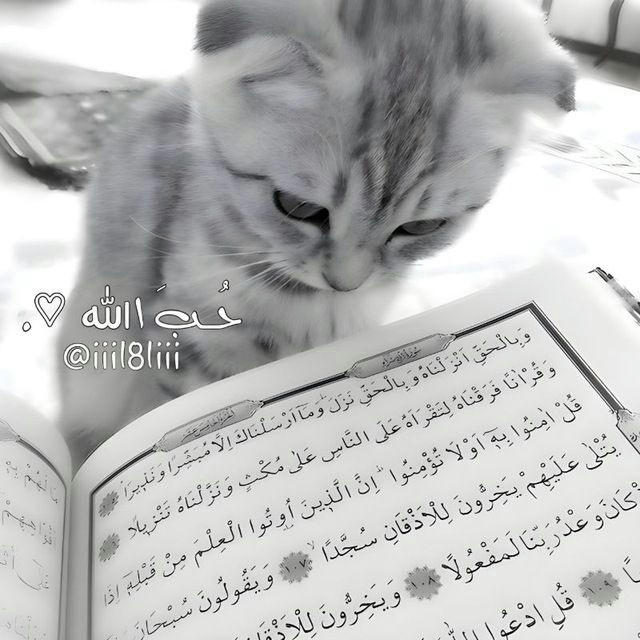 حُبَ االله ♡.
@iiil8liii
وَبِالْحَقِّ اَنْزَلْنَاهُ وَبِالْحَقِّ نَزَلَ وَمَٓا اَرْسَلْنَاكَ اِلَّا مُبَشِّرًا وَنَذ۪يرًا
وَقُرْاٰنًا فَرَقْنَاهُ لِتَقْرَاَهُ عَلَى النَّاسِ عَلٰى مُكْثٍ وَنَزَّلْنَاهُ تَنْز۪يلًا
قُلْ اٰمِنُوا بِه۪ٓ اَوْ لَا تُؤْمِنُوا اِنَّ الَّذ۪ينَ اُو۫تُوا الْعِلْمَ مِنْ قَبْلِه۪ٓ اِذَا
يُتْلٰى عَلَيْهِمْ يَخِرُّونَ لِلْاَذْقَانِ سُجَّدًا ١٠٧ وَيَقُولُونَ سُبْحَانَ
كَانَ وَعْدُ رَبِّنَا لَمَفْعُولًا ١٠٨ وَيَخِرُّونَ
١٠٩ قُلِ ادْعُوا